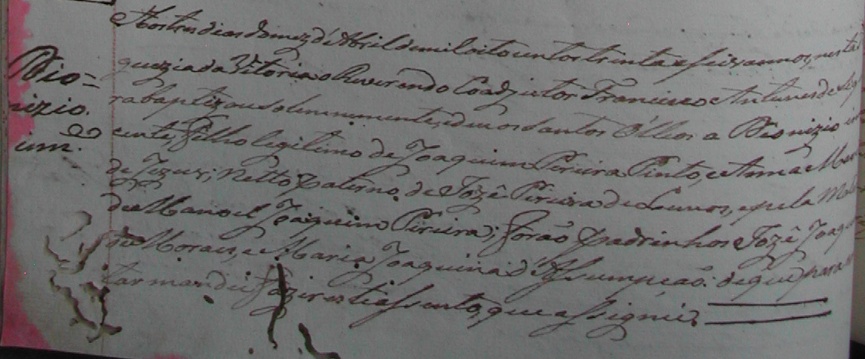 Aos tres dias do mez d'Abril de mil oito centos trinta e seis annos, nesta
Dio=
guezia da Vitoria o Reverendo Coadjutor Francisco Antunes de
nizio.
ra baptizou solemnemente, e deu os Santos Olleos a Dionizio
inn.e
cente, filho legitimo de Joaquim Pereira Pinto, e Anna Maria
de Jezus; Netto paterno de Jozê Pereira de Lemos, e pela Mater
de Manoel Joaquim Pereira; forão padrinhos Jozê Joaq
de Moraes, e Maria Joaquina d'Assumpção: de que para
tar mandei fazer este assento, que assignei.